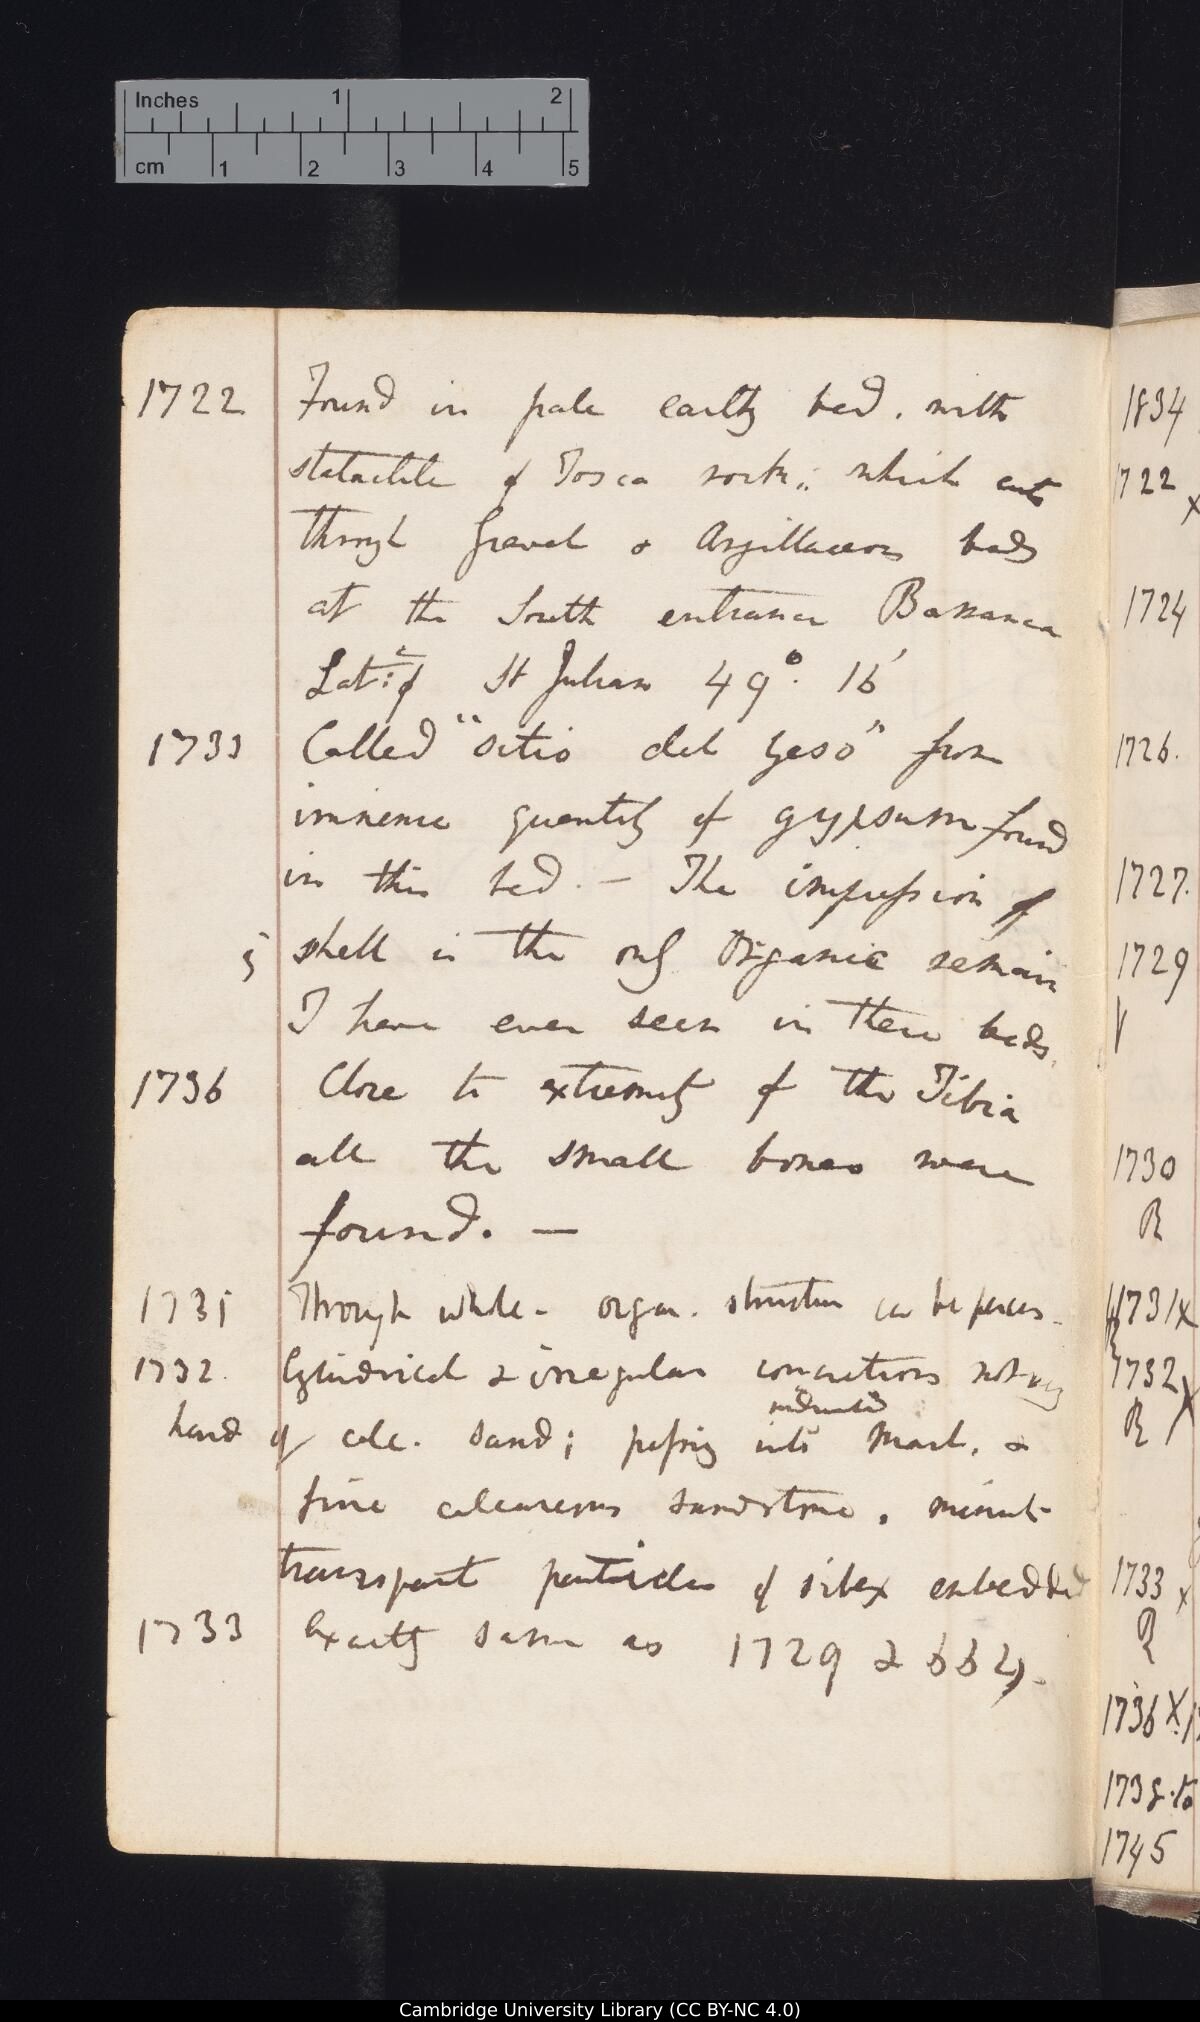 Inches 1 2
cm 1 2 3 4 5
1722 Found in pale earthy bed. with
stalactite of Tosca rock;; which cuts
through Gravel & Argillaceous beds
at the South entrance Barranca
Lat:e of St Julian 49°. 16'
1733 Called "sitio del Yeso" from
immense quantity of gypsum found
in this bed. — The impression of
5 shell is the only Organic remain
I have ever seen in these beds.
1736 Close to extremity of the Tibia
all the small bones were
found. —
1731 Through whole - organ. structure can be perceiv.
1732. Cylindrical & irregular concretions not very
indurated
hard of calc. sand; passing into Marl, &
fine calcareous sandstone. minute
transparent particles of silex embedded
1733 Exactly same as 1729 & 662).
1834
1722 x
1724
1726.
1727.
1729
1730
R
1731 x
1732 x
R
1733 x
R
1736 X.
1738.to
1745
Cambridge University Library (CC BY-NC 4.0)